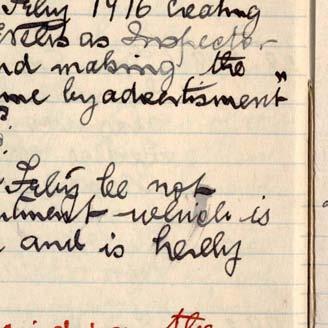 Feby 1916 creating
as Inspector
nd making the
me by advertisment"
?
Feby be not
tment which is
and is hereby
the